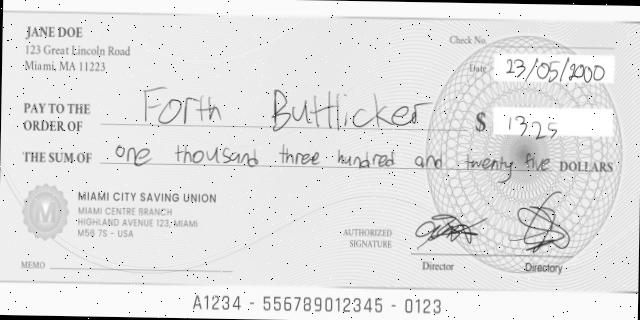 JANE DOE
123 Great Lincoln Road
Miami, MA 11223
Check No.
Date 23/05/2000
PAY TO THE
ORDER OF Forth Buttlicker $ 1325
THE SUM OF one thousand three hundred and twenty five DOLLARS
MIAMI CITY SAVING UNION
MIAMI CENTRE BRANCH
HIGHLAND AVENUE 123, MIAMI
M56 7S - USA
AUTHORIZED
SIGNATURE
MEMO
Director Directory
A1234 - 556789012345 - 0123